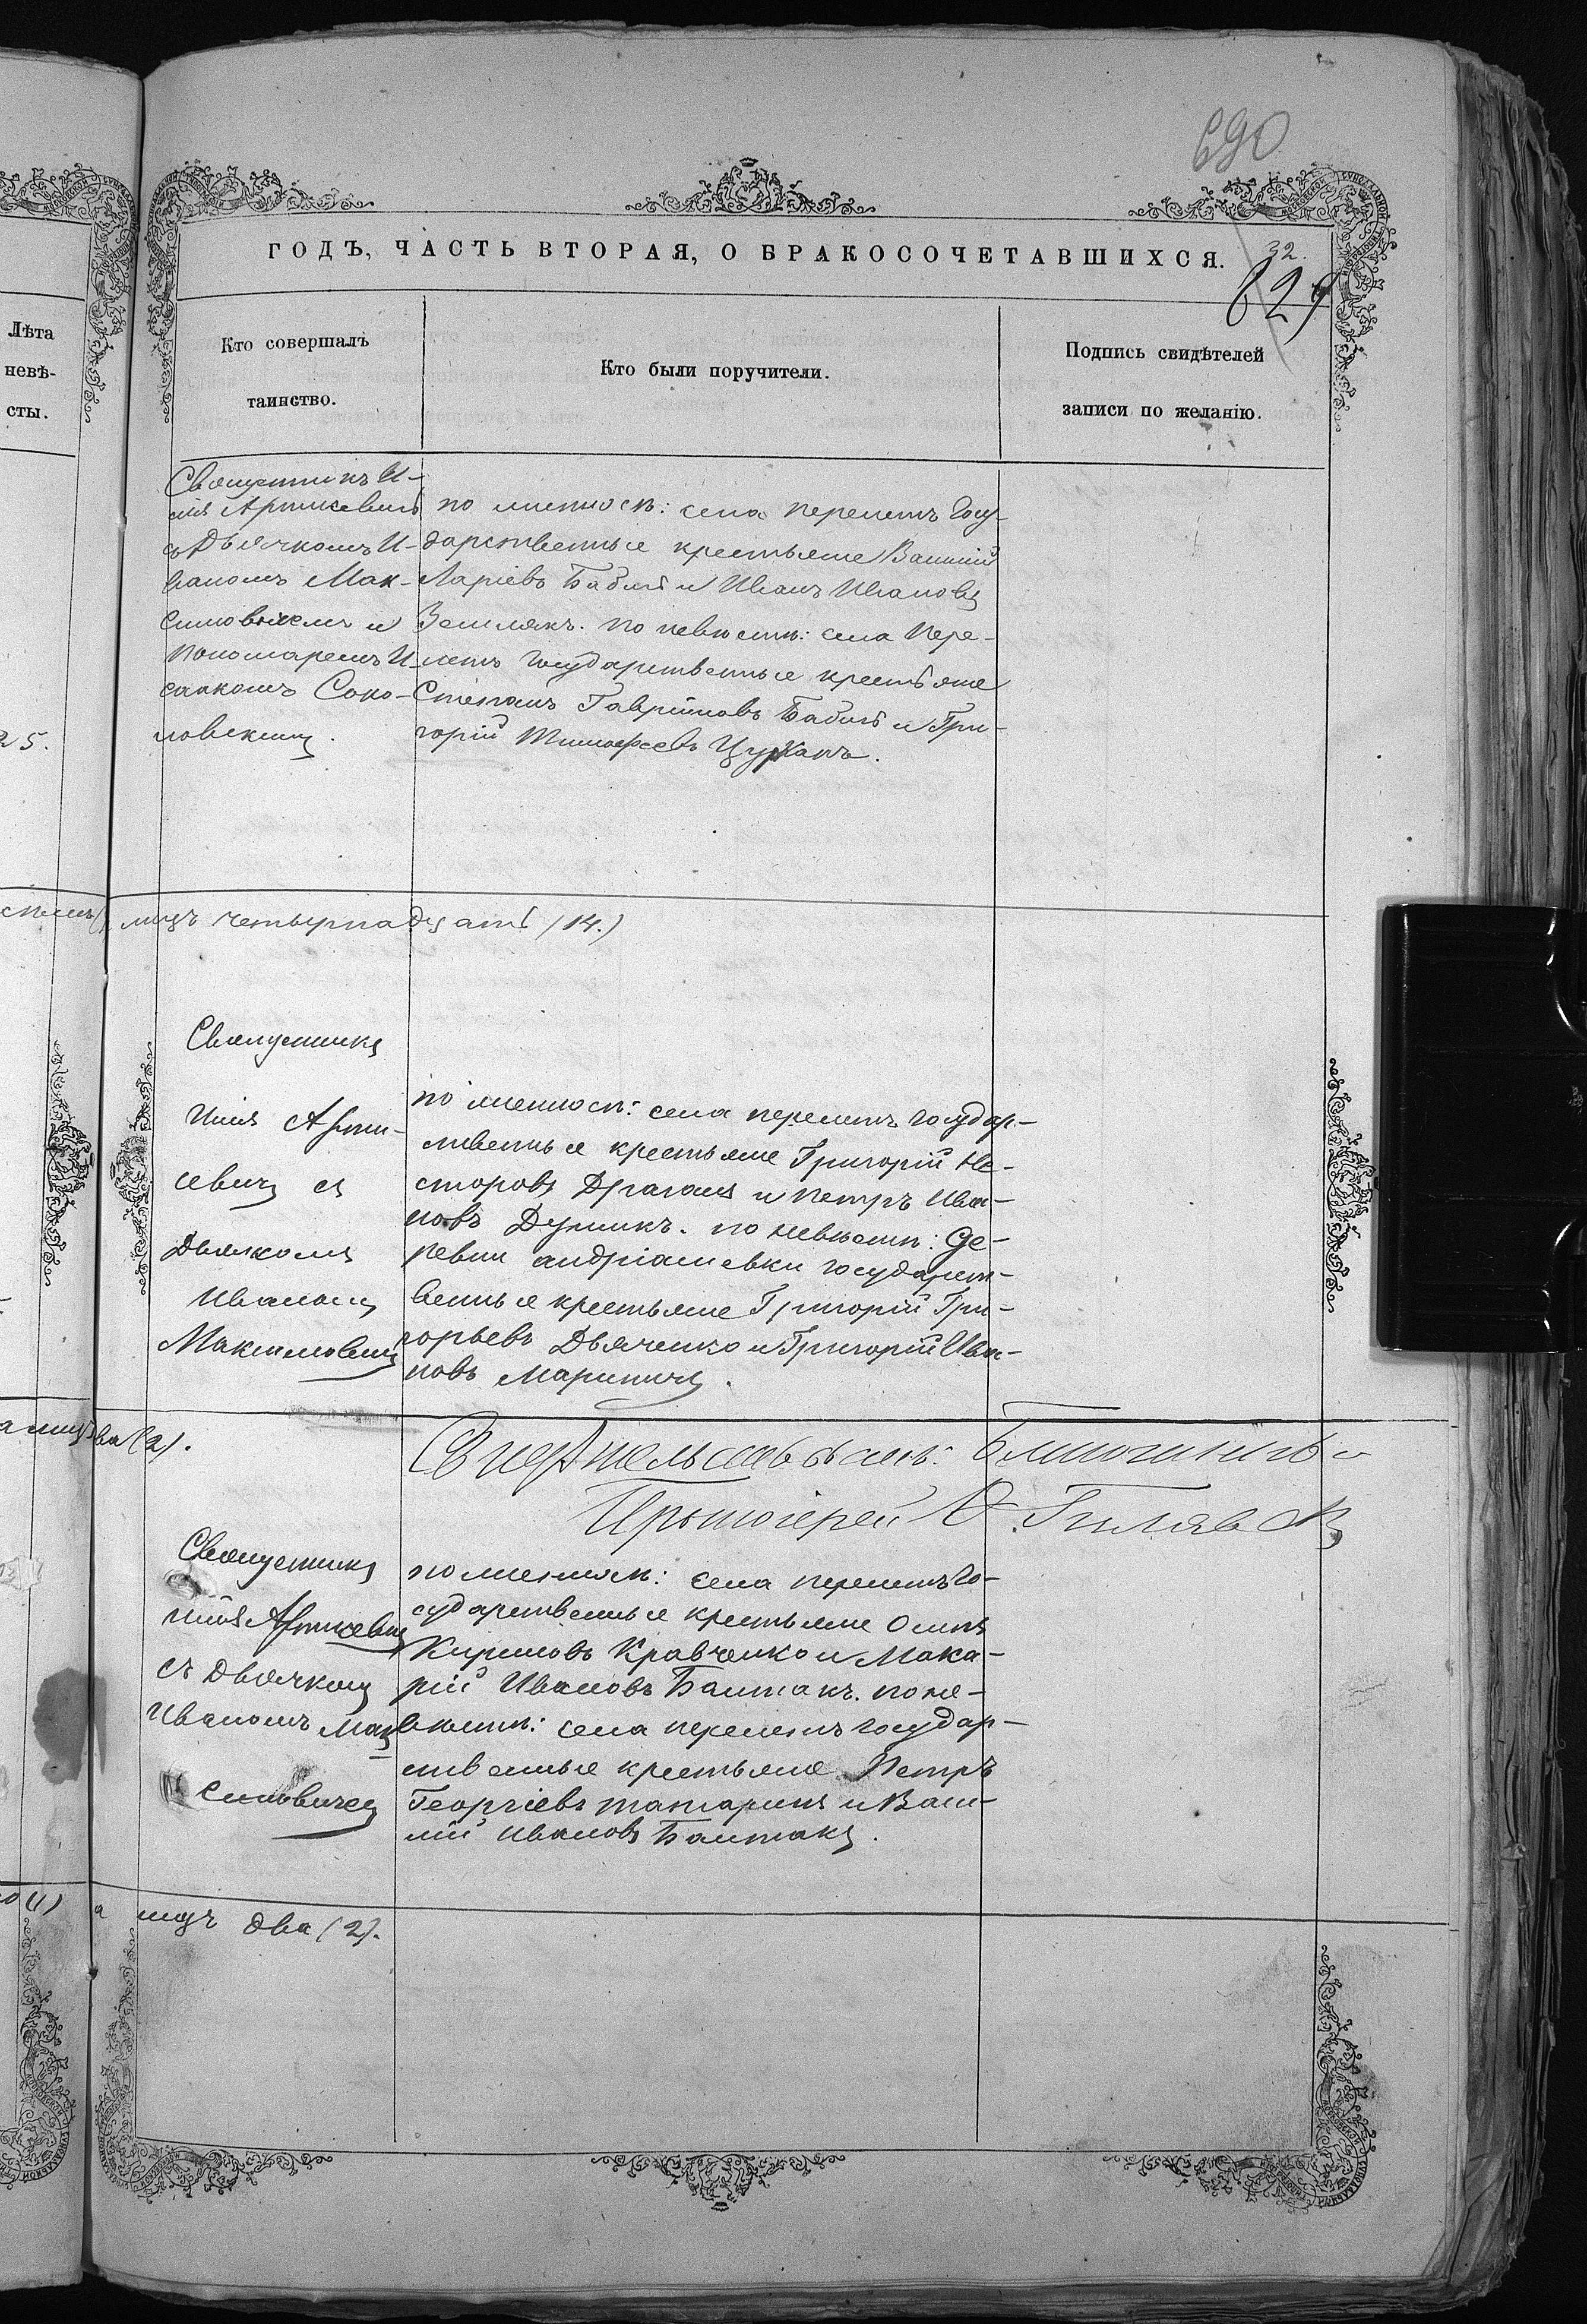 690
ГОДЪ, ЧАСТЬ ВТОРАЯ, О БРАКОСОЧЕТАВШИХСЯ.
32.
629
Лѣта
невѣ-
сты.
Кто совершалъ
таинство.
Кто были поручители.
Подпись свидѣтелей
записи по желанію.
25.
Священникъ И-
лія Артисевичъ
съ Дьячкомъ И-
ваномъ Мак-
симовичемъ и
Пономаремъ И-
саакомъ Соко-
ловскимъ.
по женихѣ: села перелетъ Госу-
дарственные крестьяне Василій
Ларіевъ Бабій и Иванъ Ивановъ
Землякъ. по невѣстѣ: села Пере-
летъ Государственные крестьяне
Степанъ Гавриловъ Бабій и Гри-
горій Тимофеевъ Цурканъ.
лицъ четырнадцать (14.)
Священникъ
Илія Арти-
севичъ съ
Дьячкомъ
Иваномъ
Максимовичемъ
по женихѣ: села перелетъ государ-
ственные крестьяне Григорій Не-
сторовъ Драганъ и Петръ Ива-
новъ Думикъ. по невѣстѣ: де-
ревни андріашевки государст-
венные крестьяне Григорій Гри-
горьевъ Дьяченко и Григорій Ива-
новъ Мариничъ.
ва (2).
Свидѣтельствовалъ: Благочинный
Протоіерей
Священникъ
Илія Артисевичъ
съ Дьячкомъ
Иваномъ Мак-
симовичемъ
по женихѣ: села перелетъ Го-
сударственные крестьяне Осипъ
Кириловъ Кравченко и Мака-
рій Ивановъ Балтакъ. по не-
вѣстѣ: села перелетъ государ-
ственные крестьяне Петръ
Георгіевъ татаринъ и Васи-
лій Ивановъ Балтакъ.
лицъ два (2).